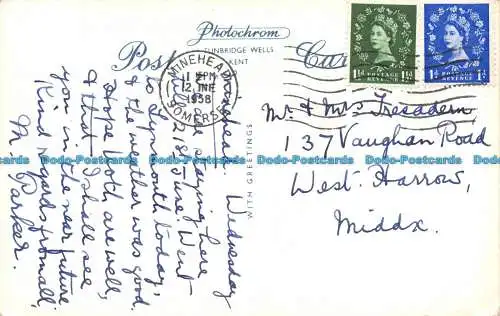 Photochrom
TUNBRIDGE WELLS
KENT
Post Card
MINEHEAD
1 PM
12 JNE
1958
SOMERSET
POSTAGE
REVENUE
1½D 1½D
POSTAGE
REVENUE
1D 1D
WITH GREETINGS
Minehead Wednesday
Just staying here
till 28th June. Went
to Lynmouth today,
& the weather was good.
Hope both are well,
& that I shall see
you in the near future
Kind regards from all,
M. Parker.
Mr & Mrs Tresadern
137 Vaughan Road
West Harrow,
Middx.
Dodo-Postcards Dodo-Postcards Dodo-Postcards Dodo-Postcards Dodo-Postcards